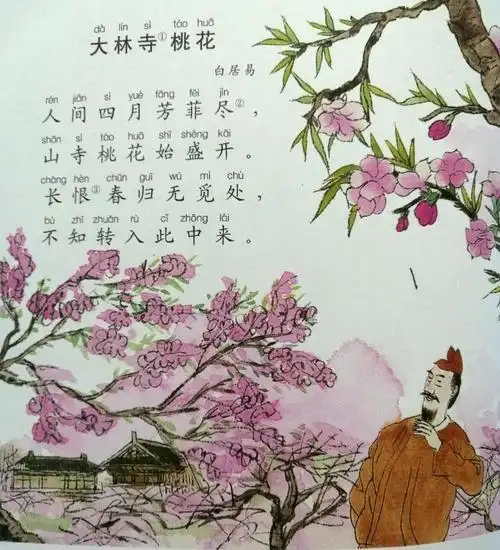 dà lín sì táo huā
大林寺①桃花
白居易
rén jiān sì yuè fāng fēi jìn
人间四月芳菲尽②，
shān sì táo huā shǐ shèng kāi
山寺桃花始盛开。
cháng hèn chūn guī wú mì chù
长恨③春归无觅处，
bù zhī zhuǎn rù cǐ zhōng lái
不知转入此中来。